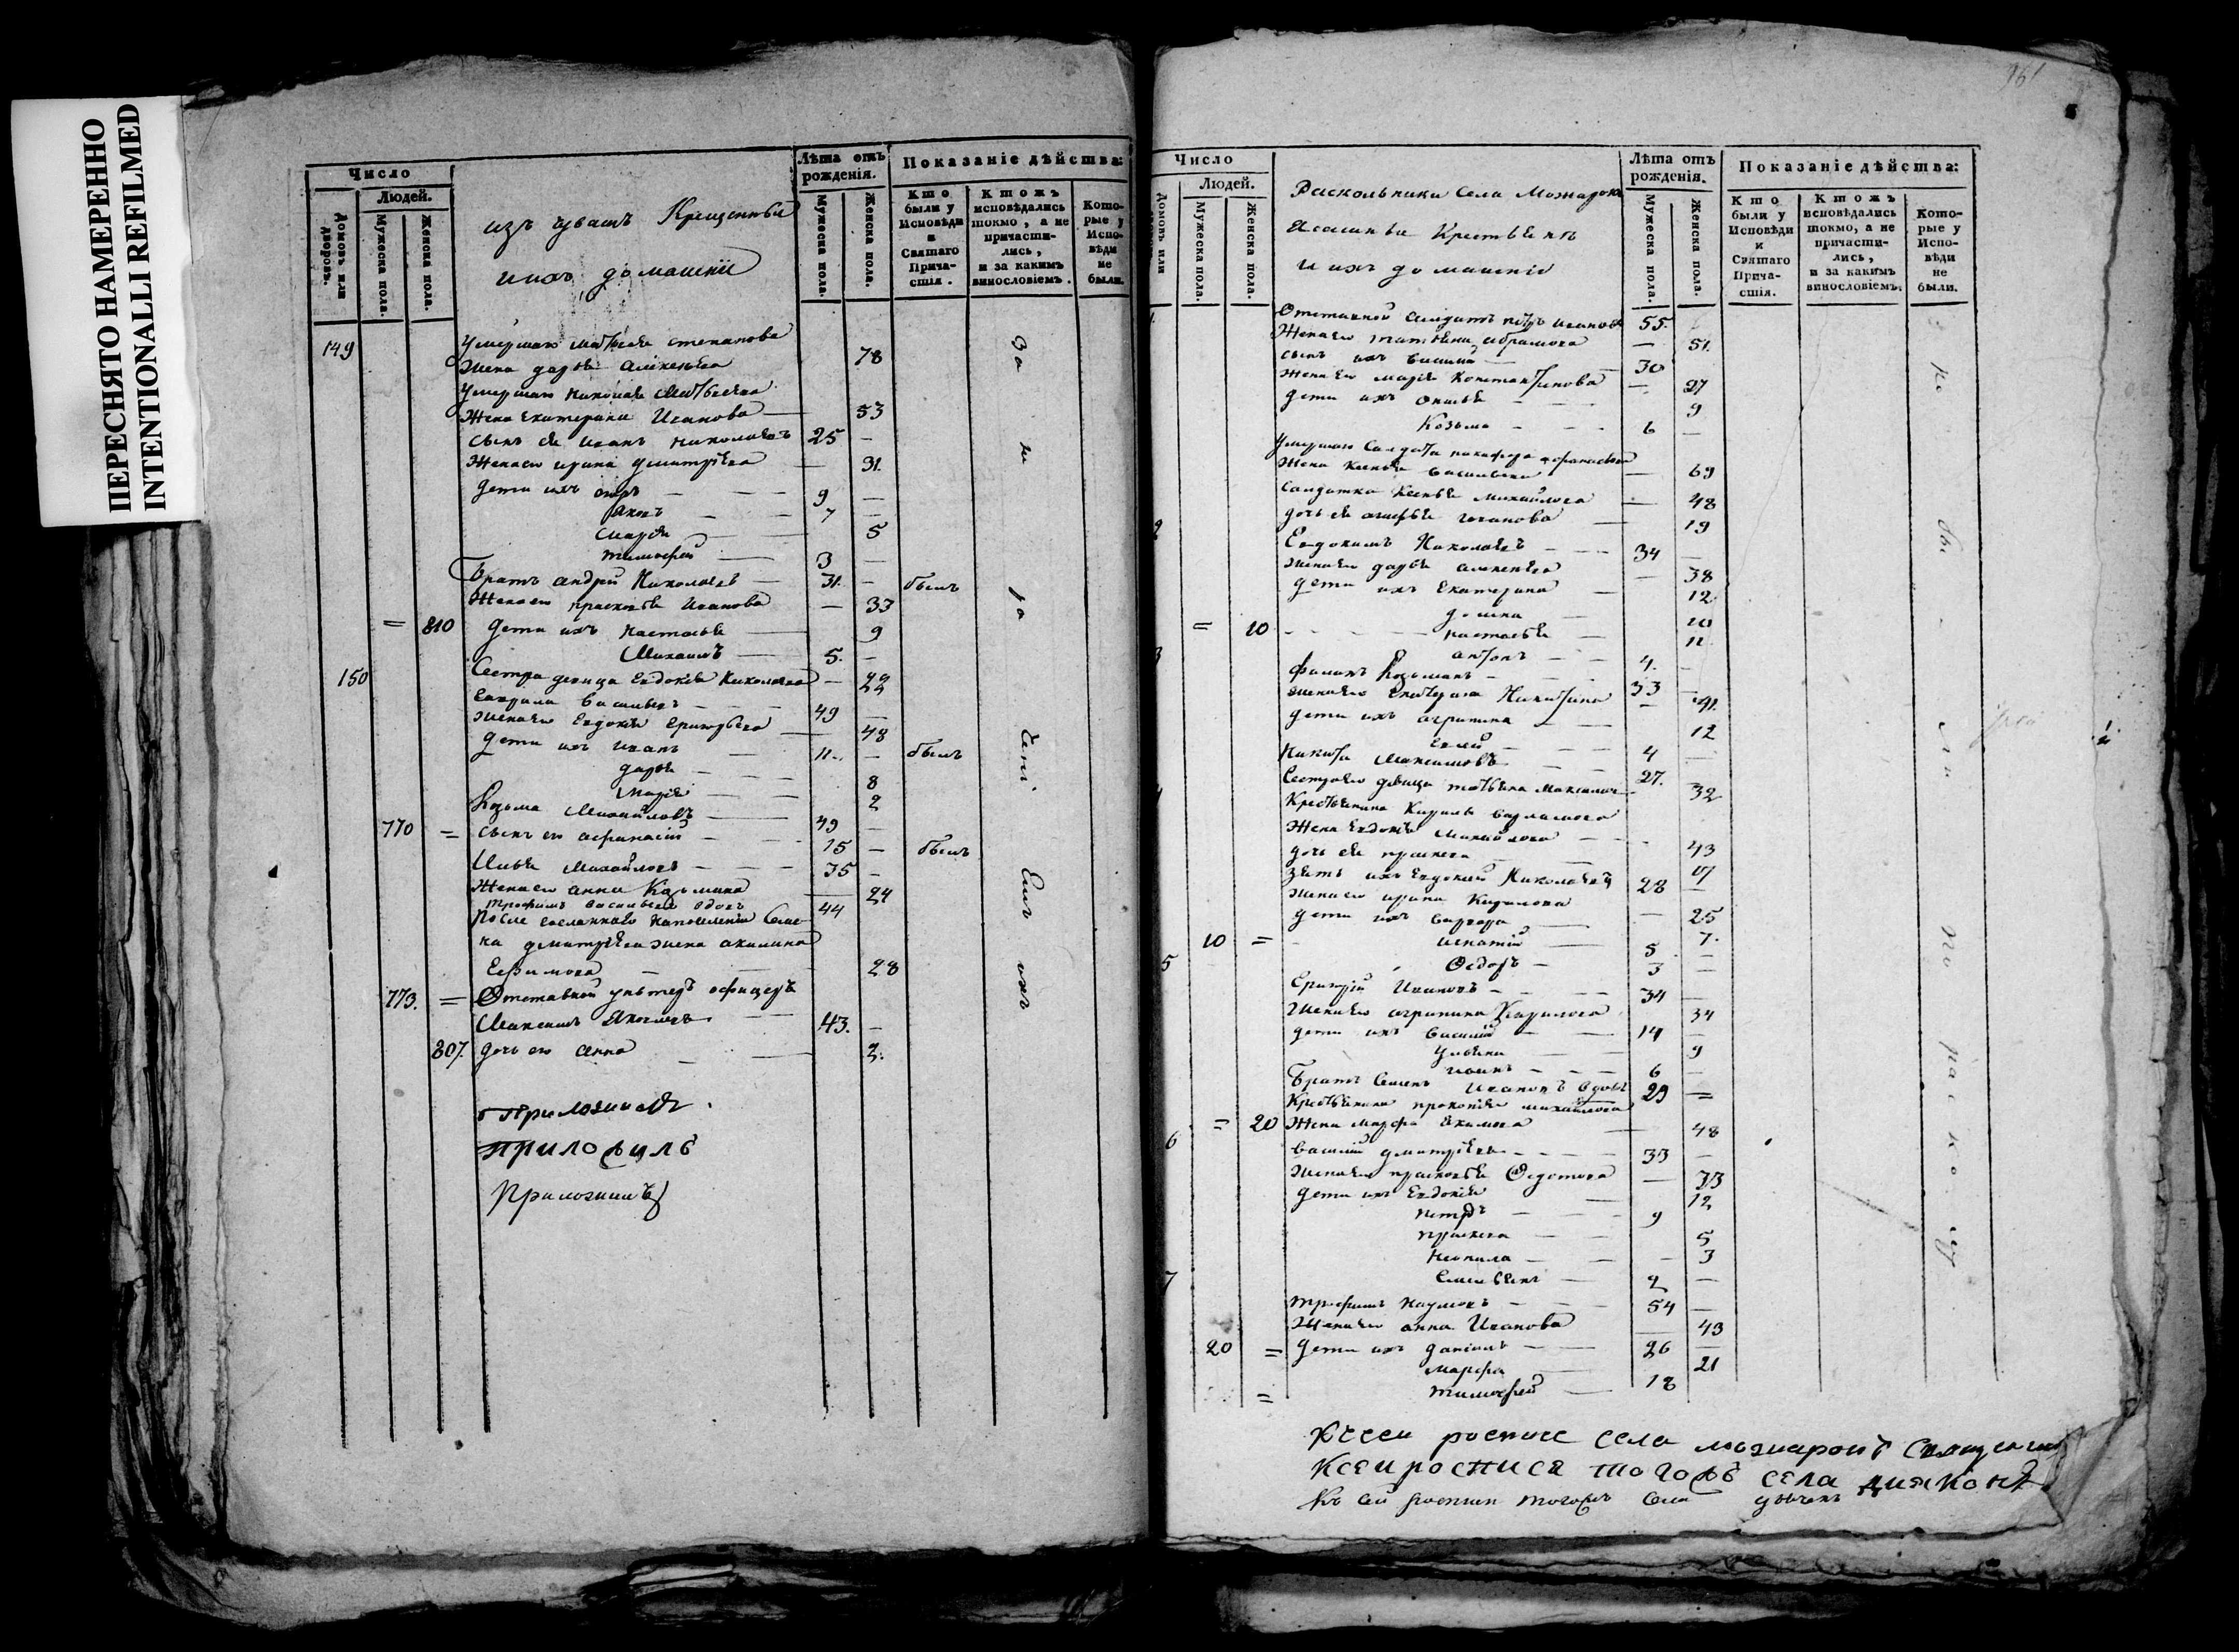 ПЕРЕСНЯТО НАМЕРЕННО
INTENTIONALLI REFILMED
Число
Людей.
Домовъ или дворовъ.
Мужеска пола.
Женска пола.
изъ чувашъ Крещенныи
и ихъ домашніи
Лѣта отъ рожденія.
Мужеска пола.
Женска пола.
Показаніе дѣйства:
Кто были у Исповѣди и Святаго Причастія.
Ктожъ исповѣдались токмо, а не причастились, и за какимъ винословіемъ.
Которые у Исповѣди не были.
149 умершаго Матвея степанова
жена дарья Алексеева 78
умершаго Николая Матвеева
Жена Екатерина Иванова 53
сынъ ея Иванъ Николаевъ 25 —
Жена ево ирина дмитріева — 31.
дети ихъ 9 —
Яковъ 7 —
Марья 5
тимофей 3 —
Братъ андрей Николаевъ 31. — былъ
Жена ево прасковья Иванова — 33
= 810 дети ихъ настасья 9
Михаилъ 5. —
150 Сестра девица Евдокія Николаева — 29
Гаврила Васильевъ 49 —
жена ево Евдокія Григорьева 48
дети ихъ иванъ 11. — былъ
дарья 8
Марія 2
Козьма Михайловъ 49 —
770 = сынъ ево афанасій 15 — былъ
Илья Михайловъ 35 —
Жена ево анна Козьмина — 24
трофимъ васильевъ вдовъ 44
после сосланнаго на поселеніе Семе-
на дмитріева жена акилина
Ефимова 28
773. = Отставной унътеръ офицеръ
Максимъ Яковлевъ 43. —
807. дочь ево Анна 2.
приложилъ
приложилъ
За не ра деніемъ ихъ
161
Число
Людей.
Домовъ или
Мужеска пола.
Женска пола.
Раскольники села Можарокъ
Ясашныи Крестьянъ
и ихъ домашніе
Лѣта отъ рожденія.
Мужеска пола.
Женска пола.
Показаніе дѣйства:
Кто были у Исповѣди и Святаго Причастія.
Ктожъ исповѣдались токмо, а не причастились, и за какимъ винословіемъ.
Которые у Исповѣди не были.
Отставной Салдатъ петръ ивановъ 55.
Жена ево татьяна абрамова — 51.
сынъ ихъ василій 30
Жена ево марія Константинова — 27
дети ихъ 9
Козьма 6 —
умершаго Салдата никифора афанасьева
Жена Ксенья васильева — 69
Салдатка Ксенья михайлова — 48
2 дочь ея иванова 19
Евдокимъ Николаевъ 34 —
жена ево дарья алексеева — 38
дети ихъ Екатерина 12
домна 10
= 10 настасья 11
3 антонъ 4. —
Козьминъ 33 —
жена ево Екатерина Никитина — 41.
дети ихъ агрипина 12
4 —
Никита Максимовъ 27.
Сестра ево девица татьяна Максимова 32
4 Крестьянина Кирилы варламова
Жена Евдокія Михайлова 43
дочь ея прасковья 17
зять ихъ Евдокимъ Николаевъ 28 —
жена ево ирина Кирилова — 25
дети ихъ варвара 7.
10 = игнатій 5 —
5 Ѳедоръ 3 —
Григорій Ивановъ 34 —
Жена ево агрипина Гаврилова 34
дети ихъ василій 14 —
ульяна 9
6 —
Братъ Семенъ Ивановъ вдовъ 29 =
Крестьянина прокопія михайлова
= 20 Жена марфа Екимова 48
6 василій дмитріевъ 33 —
жена ево прасковья Ѳедотова — 33
дети ихъ Евдокія 12
петръ 9
5
неонила — 3
7 Емельянъ 2 —
трофимъ Наумовъ 54 —
Жена ево анна Иванова 43
20 = дети ихъ даніилъ 26 —
марфа 21
= тимофей 18
не бы ли по рас ко лу
села можарокъ священникъ
Ксеи росписи тогожъ села диаконъ
Къ сей росписи тогожъ села